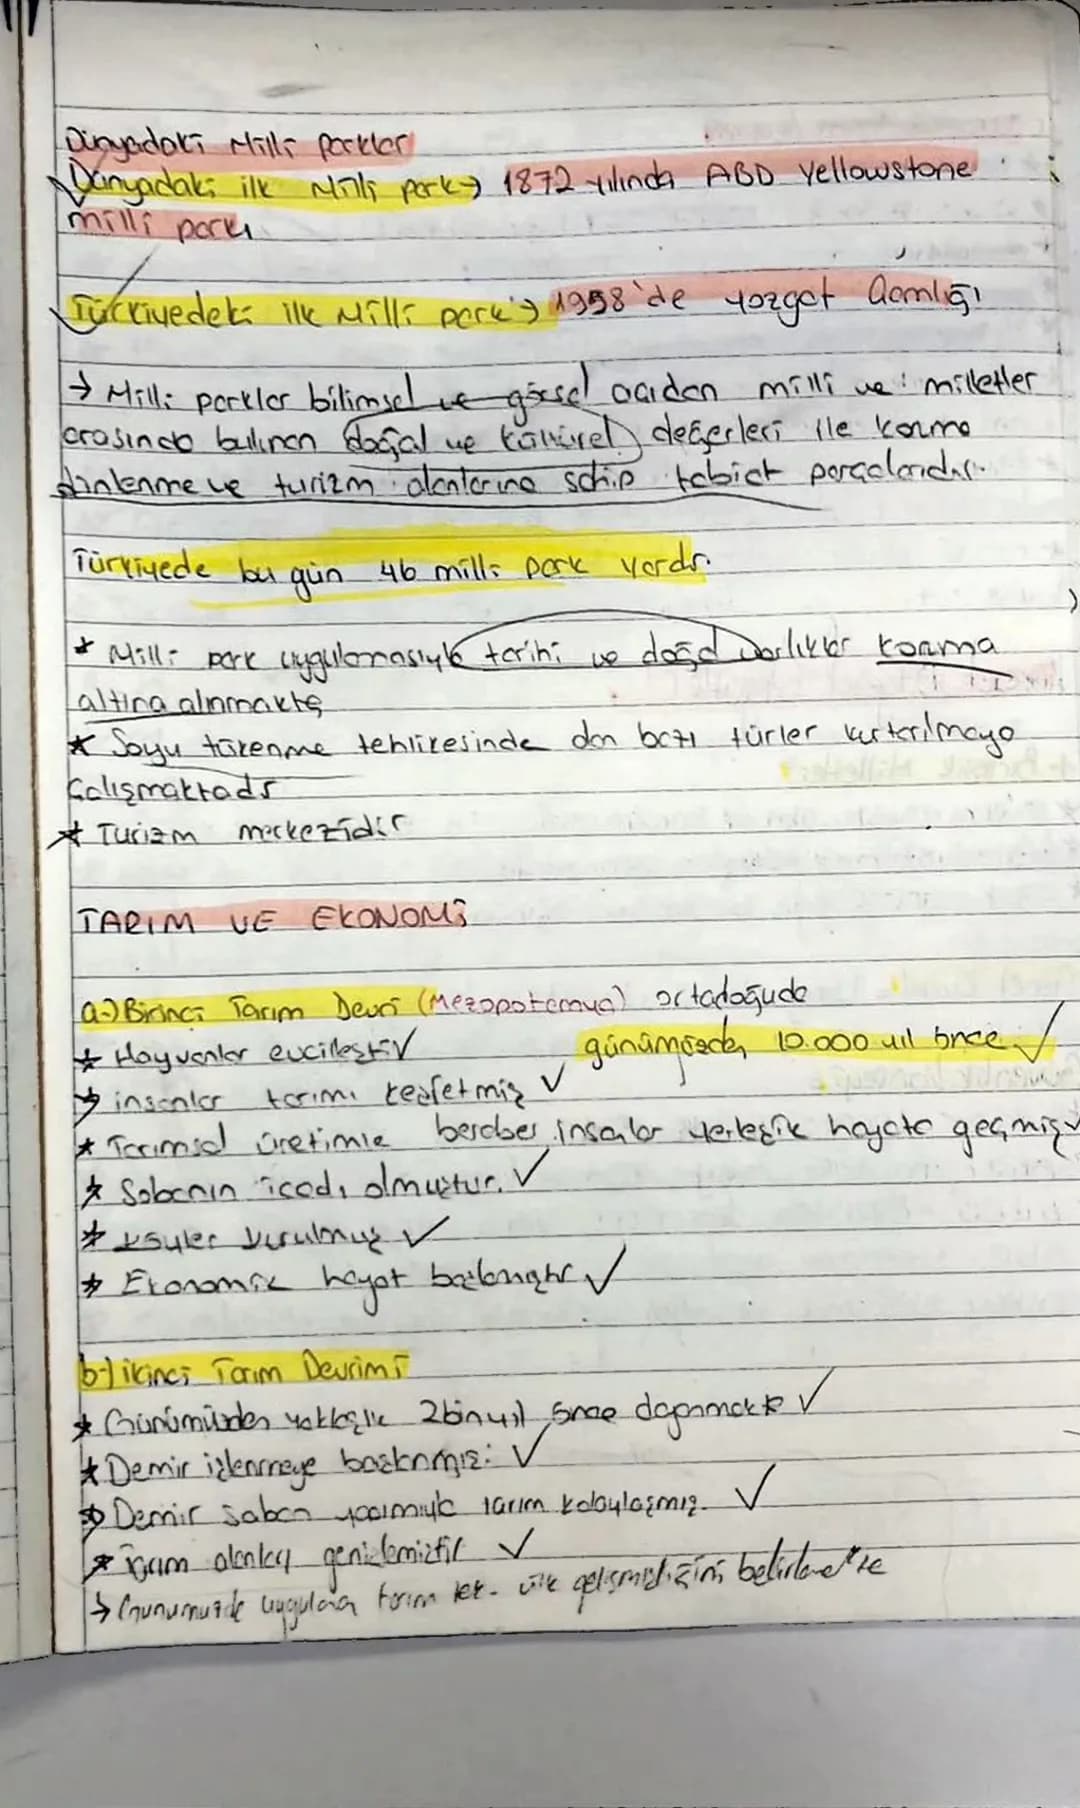 Dünyadaki Milli Parklar
Dünyadaki ilk Milli park → 1872 yılında ABD Yellowstone
milli parkı
Türkiyedeki ilk Milli park → 1958'de Yozgat Çamlığı
→ Milli parklar bilimsel ve görsel açıdan milli ve milletler
arasında bulunan doğal ve kültürel değerleri ile koruma
dinlenme ve turizm alanlarına sahip tabiat parçalarıdır.
Türkiyede bu gün 46 milli park vardır.
* Milli park uygulamasıyla tarihi ve doğal varlıklar koruma
altına alınmakta
* Soyu tükenme tehlikesinde olan bazı türler kurtarılmaya
çalışmaktadır
* Turizm merkezidir
TARIM VE EKONOMİ
a-) Birinci Tarım Devri (Mezopotamya) ortadoğuda
* Hayvanlar evcilleştir ✓ günümüzden 10.000 yıl önce ✓
→ insanlar tarımı keşfetmiş ✓
* Tarımsal üretimle beraber insalar yerleşik hayata geçmiş ✓
* Sabanın icadı olmuştur. ✓
* Köyler kurulmuş ✓
* Ekonomik hayat başlamıştır ✓
b-) ikinci Tarım Devrimi
* Günümüzden yaklaşık 2bin yıl önce dayanmakta ✓
* Demir işlenmeye başlanmış. ✓
→ Demir saban yapımıyla tarım kolaylaşmış. ✓
* Tarım alanları genişlemiştir ✓
→ Günümüzde uygulanan tarım tek. ülk gelişmişliğini belirlemekte